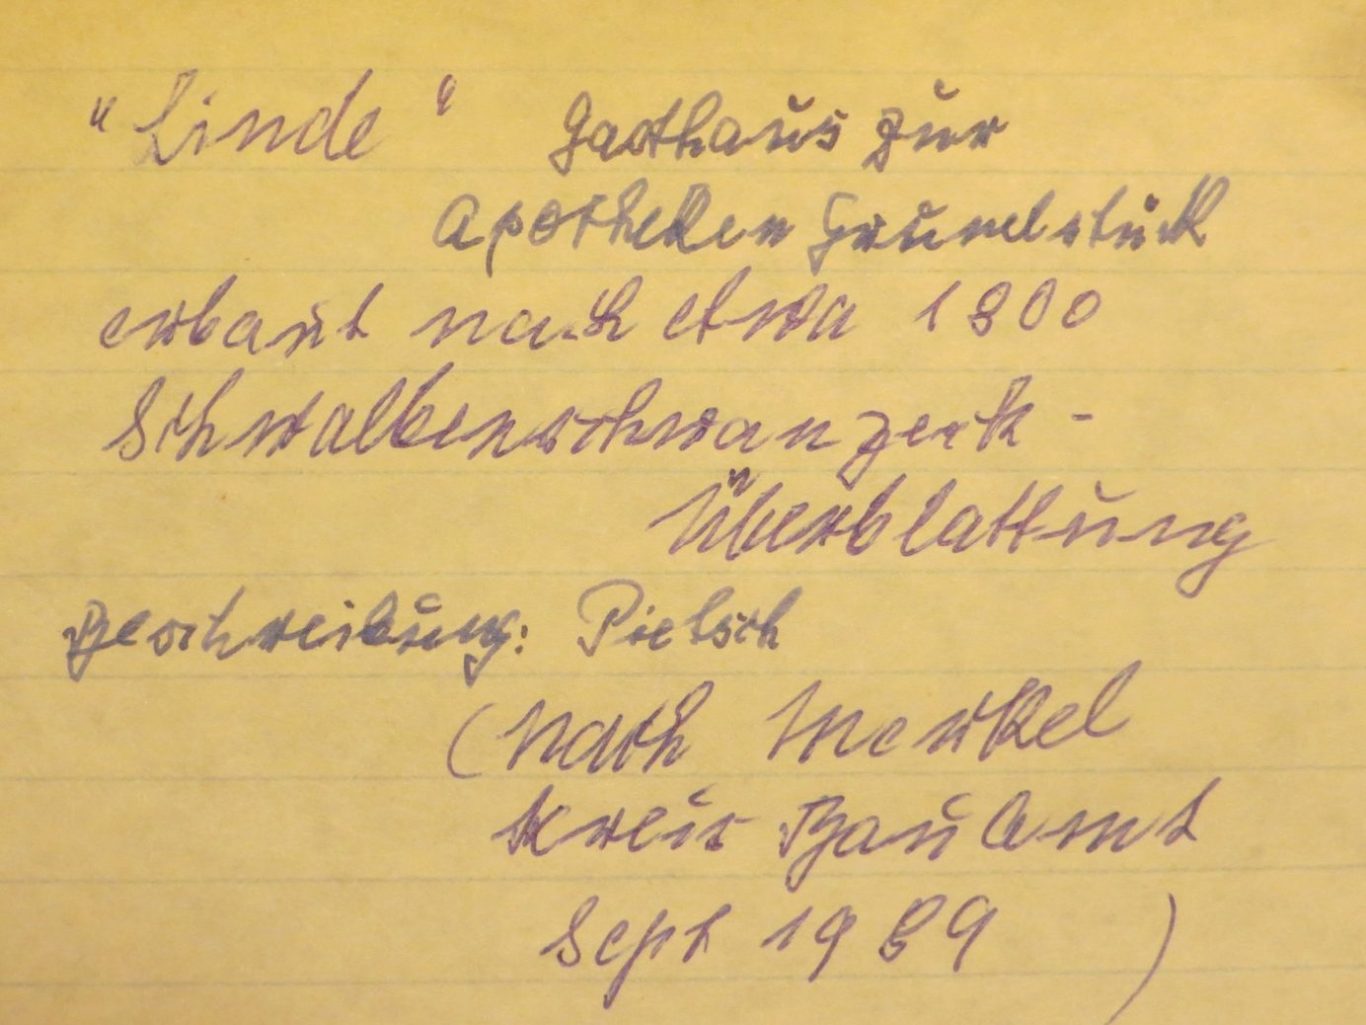 "Linde" Gasthaus zur
Apotheken Grundstück
erbaut nach etwa 1800
Schwalbenschwanzeck-
Überblattung
Beschreibung: Pietsch
(Nach Merkel
Kreis BauAmt
Sept 1989 )